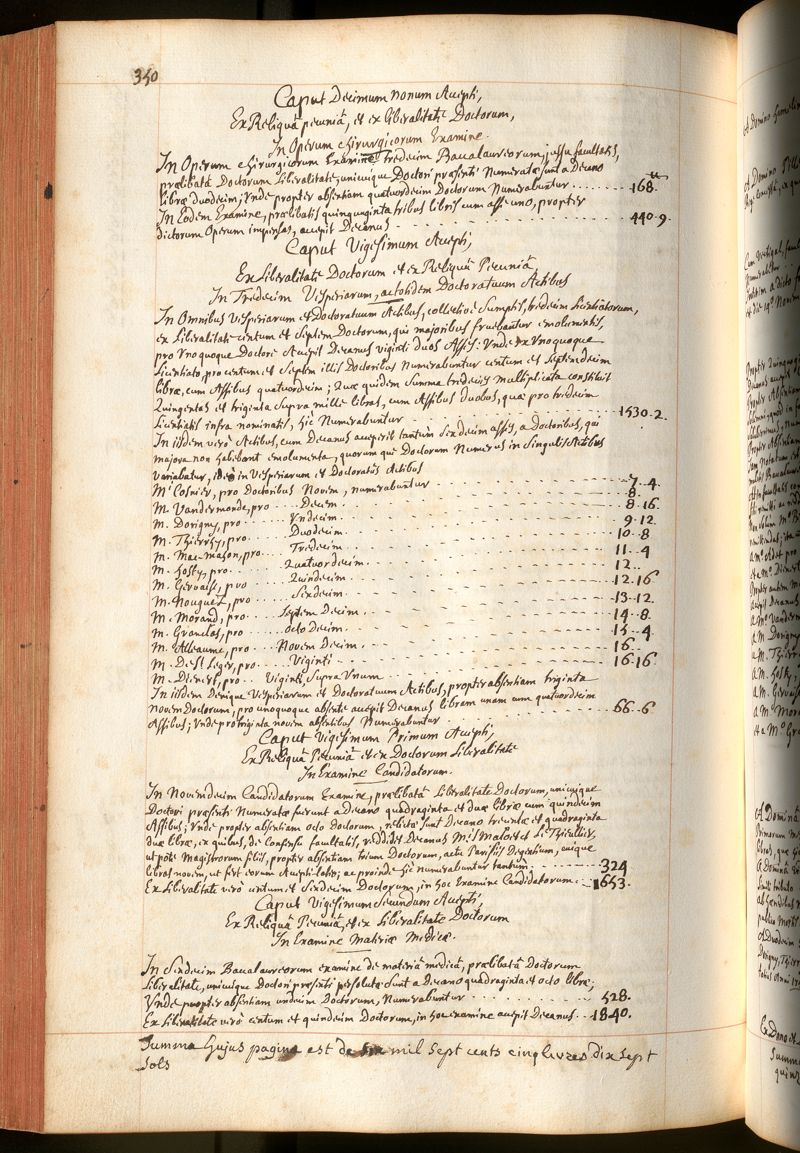 350
Caput Decimum nonum Accepti,
Ex Reliquâ pecuniâ, et ex liberalitate Doctorum,
In Operum Chirurgicorum Examine.
In Operum Chirurgicorum Examine tredecim Baccalaureorum, jussu facultatis,
prælibatâ Doctorum Liberalitate, unicuique Doctori præsenti Numeratæ sunt a Decano
libræ duodecim; Unde propter absentiam quatuordecim Doctorum Numerabuntur . . . . . . 168.
In Eodem Examine, prælibatis quinquaginta tribus libris cum asse uno, propter
dictorum Operum impensas, accepit Decanus . . . . . . 440.9.
Caput Vigesimum Accepti,
Ex Liberalitate Doctorum et ex Reliquâ Pecuniâ
In Tredecim Vesperiarum, ac totidem Doctoratuum Actibus
In Omnibus Vesperiarum et Doctoratuum Actibus, collectivè Sumptis, tredecim Licentiatorum,
ex Liberalitate centum et Septem Doctorum, qui majoribus fruebantur emolumentis,
pro Unoquoque Doctore Accepit Decanus viginti duos Asses: Unde ex Unoquoque
Licentiato, pro centum et Septem illis Doctoribus Numerabuntur centum et Septemdecim
libræ, cum Assibus quatuordecim; Quæ quidem Summa tredecies multiplicata constituit
Quingentas et triginta Supra mille libras, cum Assibus duobus, quæ pro tredecim
Licentiatis infra nominatis, hîc Numerabuntur . . . . . . 1530.2.
In iisdem verò Actibus, cum Decanus acceperit tantùm Sexdecim asses, a Doctoribus, qui
majora non habebant emolumenta, quorum que Doctorum Numerus in Singulis Actibus
variabatur, ideò in Vesperiarum et Doctoratûs Actibus
Mr. Cosnier, pro Doctoribus Novem, numerabuntur . . . . . . 7..4.
M. Vandermonde, pro . . . Decem . . . . . . 8.
M. Dorigny, pro . . . Undecim . . . . . . 8.16.
M. Thierry, pro . . . Duodecim . . . . . . 9.12.
M. Mac-mahon, pro . . . Tredecim . . . . . . 10..8
M. hosty, pro . . . Quatuordecim . . . . . . 11..4
M. Gervaise, pro . . . Quindecim . . . . . . 12..
M. Nouguez, pro . . . Sexdecim . . . . . . 12.16
M. Morand, pro . . . Septem Decim . . . . . . 13..12.
M. Granclas, pro . . . octo Decim . . . . . . 14..8.
M. Alleaume, pro . . . Novem Decim . . . . . . 15..4.
M. De St Leger, pro . . . Viginti . . . . . . 16..
M. Dienert, pro . . . Viginti, Supra Unum . . . . . . 16.16
In iisdem Denique Vesperiarum et Doctoratuum Actibus, propter absentiam triginta
novem Doctorum, pro unoquoque absente accepit Decanus libram unam cum quatuordecim
Assibus; Unde pro triginta novem absentibus Numerabuntur . . . . . . 66..6
Caput Vigesimum Primum Accepti,
Ex Reliquâ Pecuniâ et ex Doctorum Liberalitate
In Examine Candidatorum.
In Novemdecim Candidatorum Examine, prælibatâ Liberalitate Doctorum, unicuique
Doctori præsenti Numeratæ fuerunt a Decano quadraginta et duæ libræ cum quindecim
Assibus; Unde propter absentiam octo Doctorum, relictæ sunt Decano trecentæ et quadraginta
duæ libræ, ex quibus, de Consensu facultatis, reddidit Decanus M.is Maloet et Le Thieullier,
ut pote Magistrorum filiis, propter absentiam trium Doctorum, actu Parisiis Degentium, cuique
libras novem, ut fert eorum Accepti-latio; ac proinde hîc numerabuntur tantum . . . . . . 324
Ex Liberalitate verò centum et Sexdecim Doctorum, in hoc Examine Candidatorum . . 1653.
Caput Vigesimum Secundum Accepti,
Ex Reliquâ Pecuniâ, et ex Liberalitate Doctorum
In Examine Materiæ Medicæ.
In Sexdecim Baccalaureorum examine de materiâ medicâ, prælibatâ Doctorum
Liberalitate, unicuique Doctori præsenti persolutæ sunt a Decano quadraginta et octo libræ;
Unde propter absentiam undecim Doctorum, Numerabuntur . . . . . . 528.
Ex Liberalitate verò centum et quindecim Doctorum, in hoc examine accepit Decanus . . 1840.
Summa hujus paginæ est de six mil sept cents cinq livres dix sept
sols